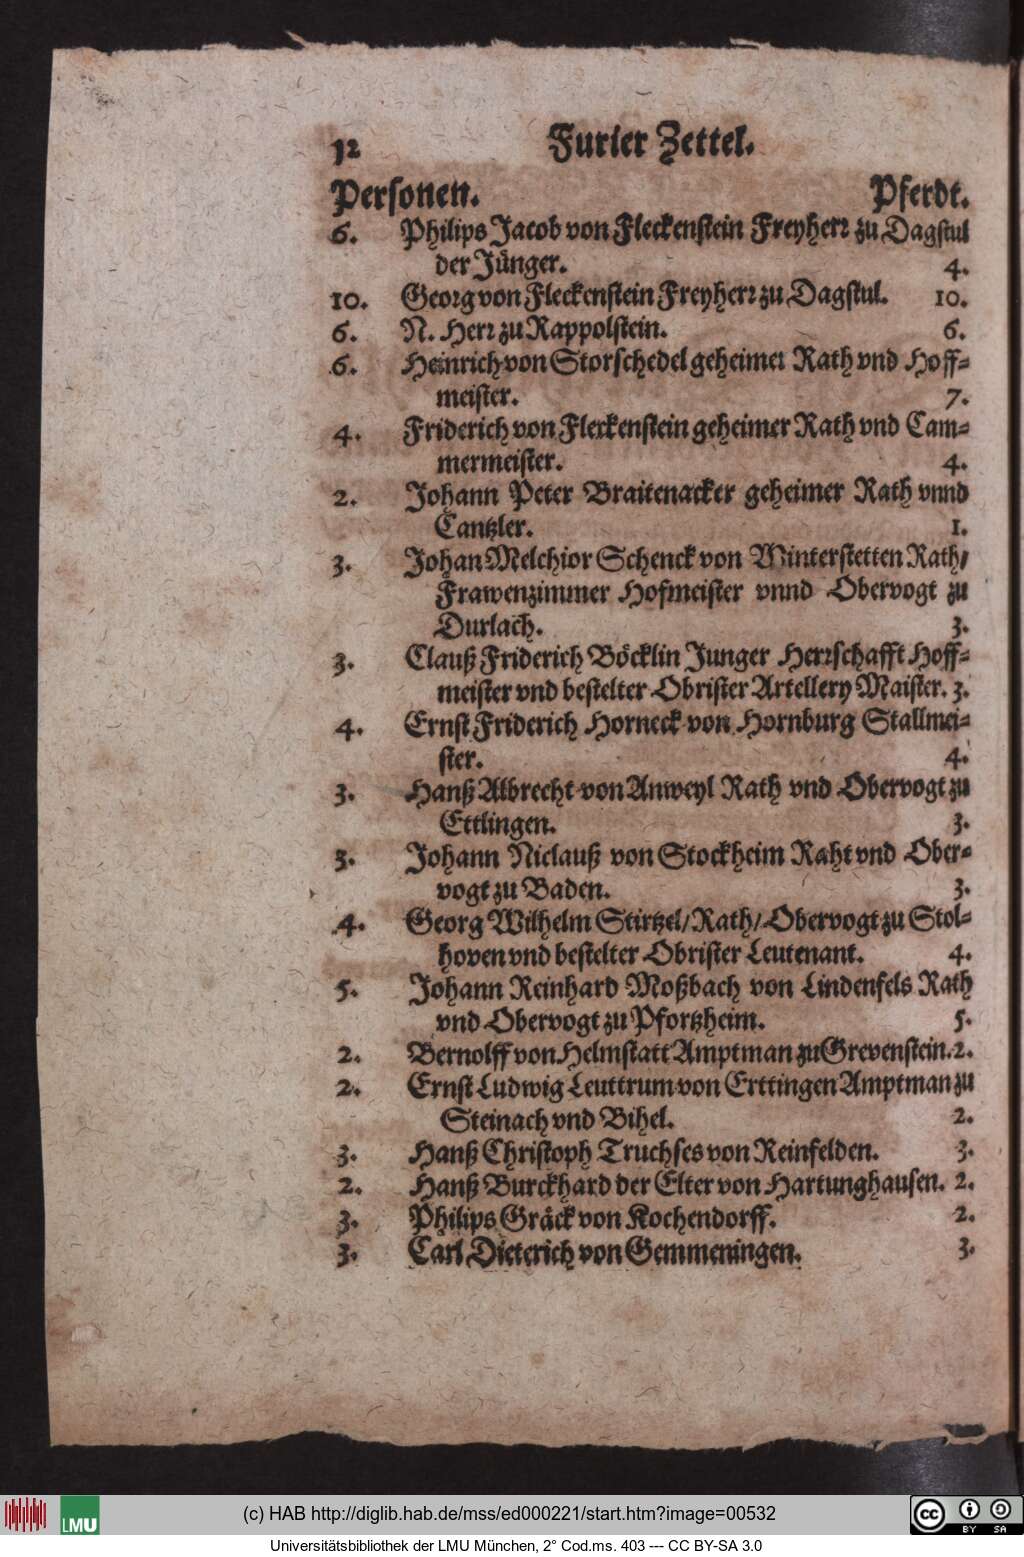 12 Furier Zettel.
Personen. Pferdt.
6. Philips Jacob von Fleckenstein Freyherr zu Dagstul
der Jünger. 4.
10. Georg von Fleckenstein Freyherr zu Dagstul. 10.
6. N. Herr zu Rappolstein. 6.
6. Heinrich von Storschedel geheimer Rath vnd Hoff-
meister. 7.
4. Friderich von Fleckenstein geheimer Rath vnd Cam-
mermeister. 4.
2. Johann Peter Braitenacker geheimer Rath vnnd
Cantzler. 1.
3. Johan Melchior Schenck von Winterstetten Rath/
Frawenzimmer Hofmeister vnnd Obervogt zu
Durlach. 3.
3. Clauß Friderich Böcklin Junger Herrschafft Hoff-
meister vnd bestelter Obrister Artellery Maister. 3.
4. Ernst Friderich Horneck von Hornburg Stallmei-
ster. 4.
3. Hanß Albrecht von Anweyl Rath vnd Obervogt zu
Ettlingen. 3.
3. Johann Niclauß von Stockheim Raht vnd Ober-
vogt zu Baden. 3.
4. Georg Wilhelm Stirtzel/ Rath/ Obervogt zu Stol-
hoven vnd bestelter Obrister Leutenant. 4.
5. Johann Reinhard Moßbach von Lindenfels Rath
vnd Obervogt zu Pfortzheim. 5.
2. Bernolff von Helmstatt Amptman zu Grevenstein. 2.
2. Ernst Ludwig Leuttrum von Erttingen Amptman zu
Steinach vnd Bihel. 2.
3. Hanß Christoph Truchses von Reinfelden. 3.
2. Hanß Burckhard der Elter von Hartunghausen. 2.
3. Philips Gräck von Kochendorff. 2.
3. Carl Dieterich von Gemmeningen. 3.
LMU
(c) HAB http://diglib.hab.de/mss/ed000221/start.htm?image=00532
cc BY SA
Universitätsbibliothek der LMU München, 2° Cod.ms. 403 --- CC BY-SA 3.0